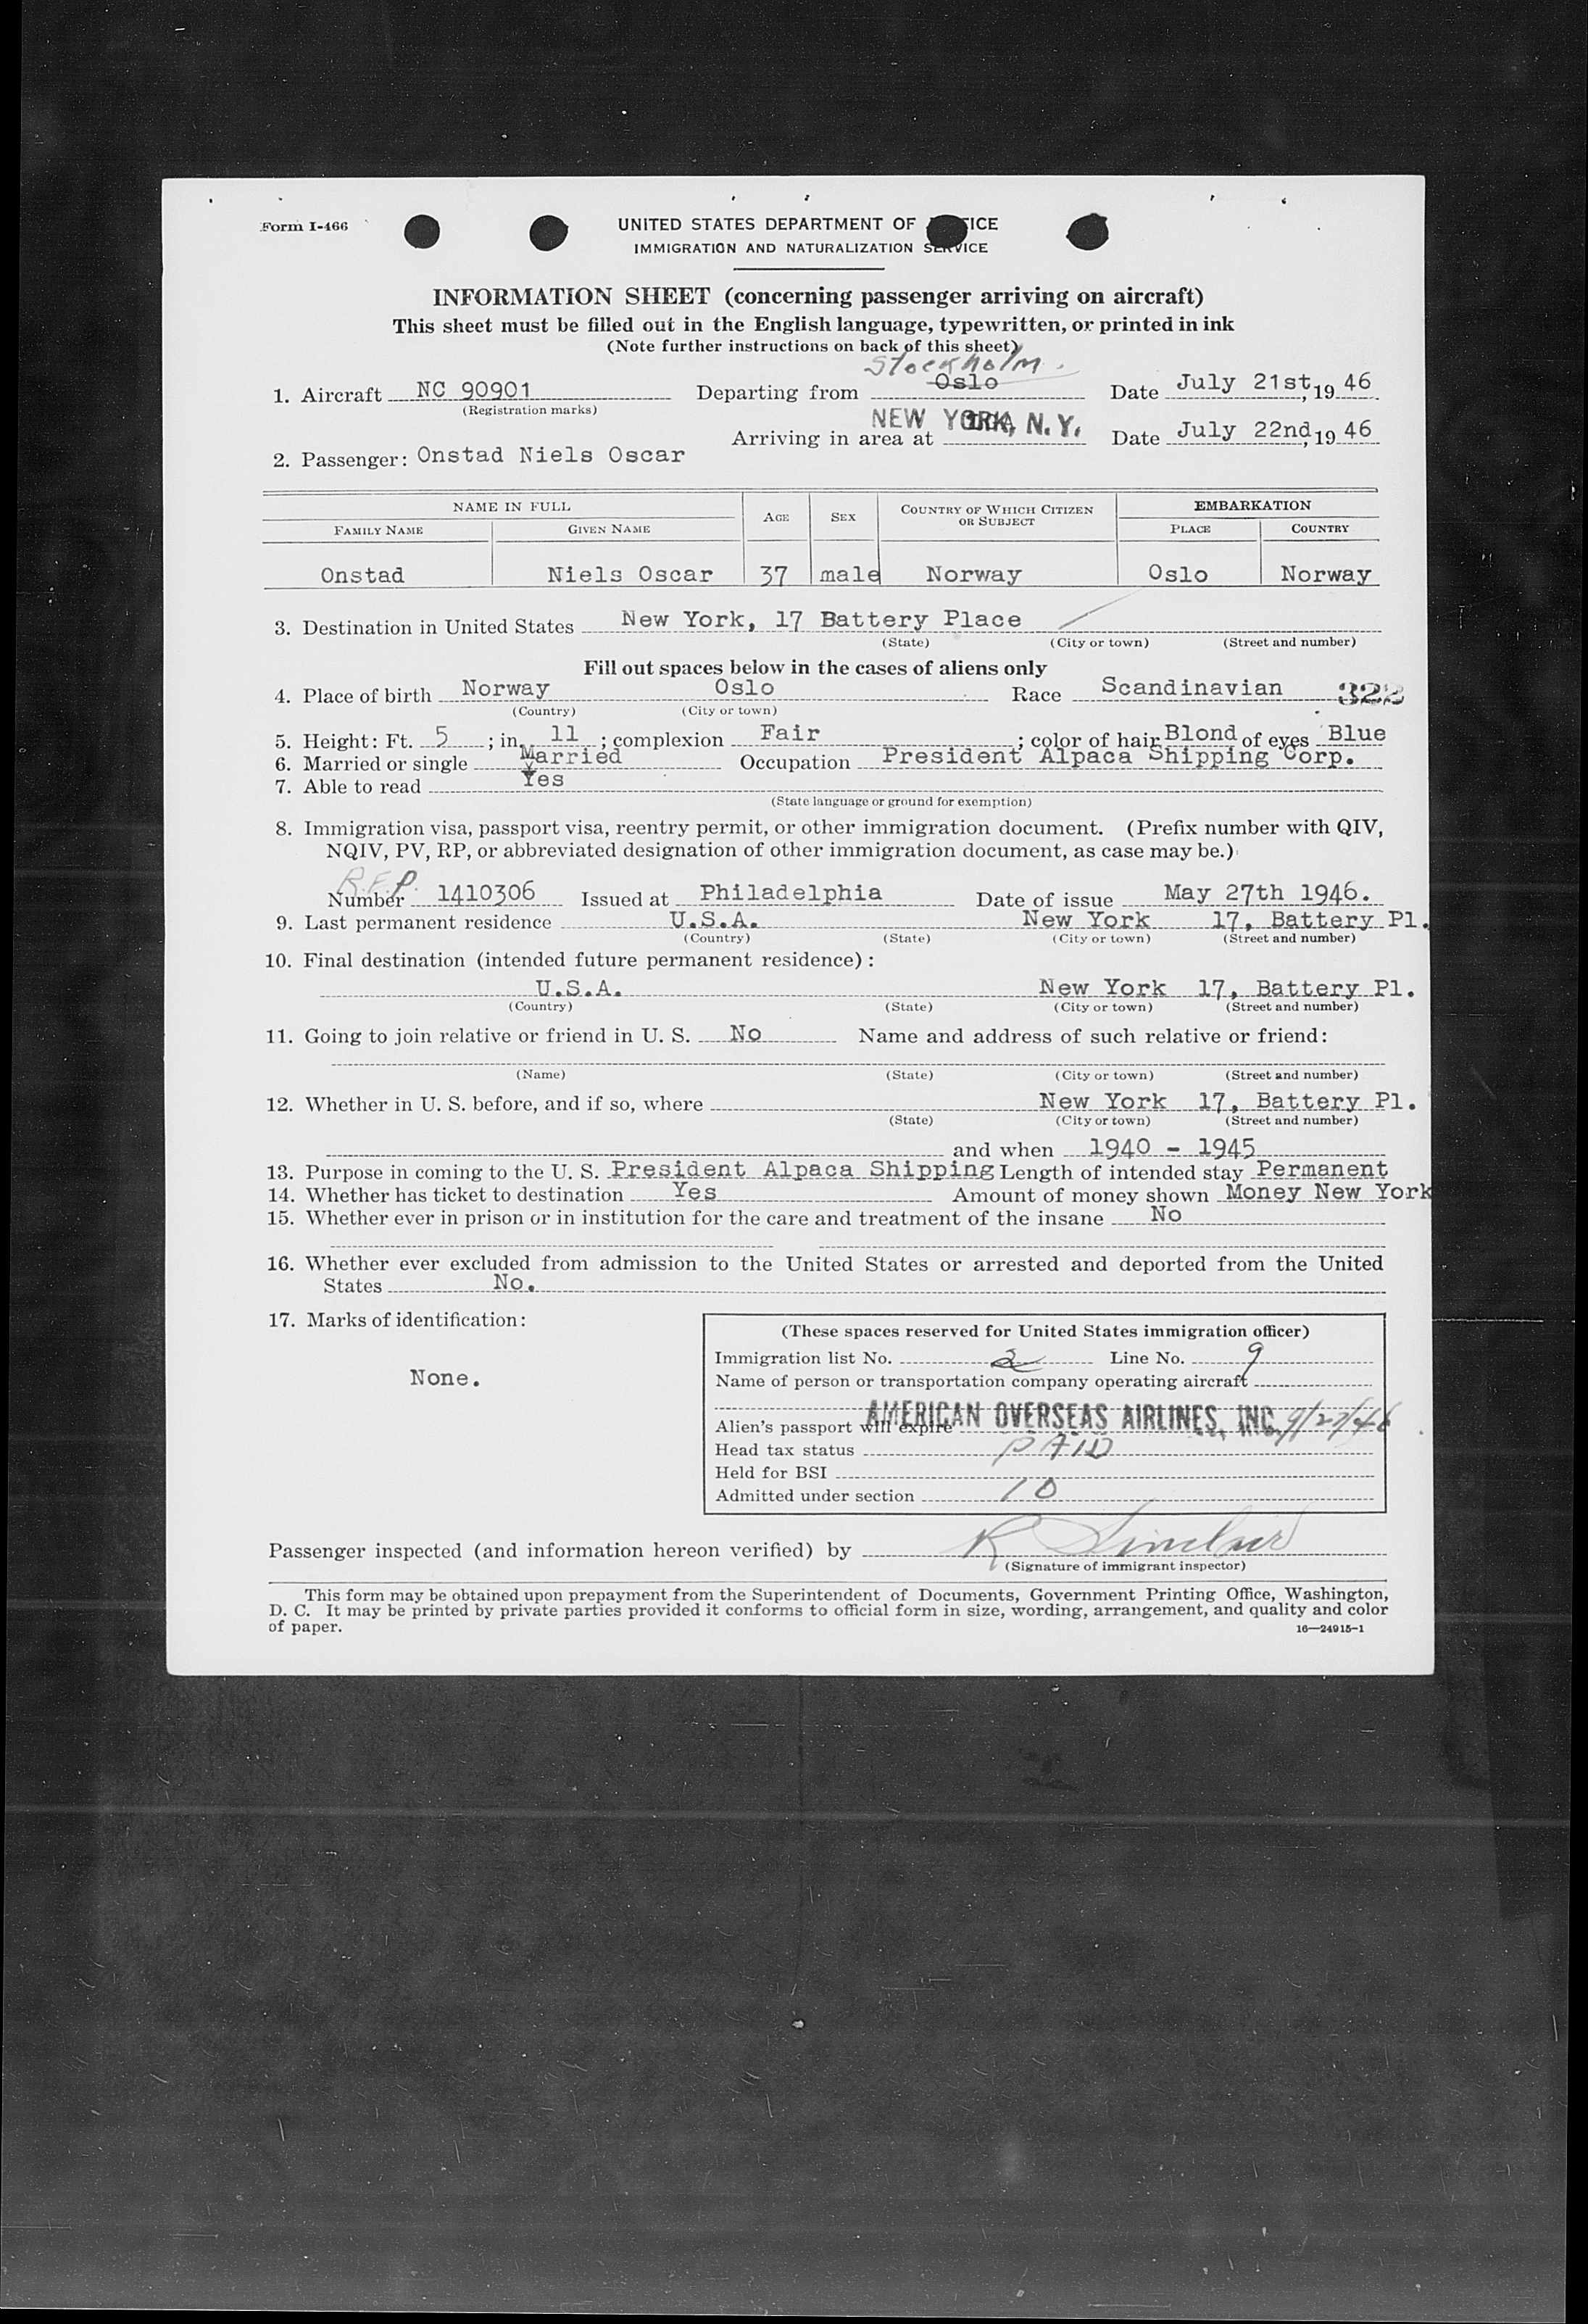 Form I-466
UNITED STATES DEPARTMENT OF JUSTICE
IMMIGRATION AND NATURALIZATION SERVICE
INFORMATION SHEET (concerning passenger arriving on aircraft)
This sheet must be filled out in the English language, typewritten, or printed in ink
(Note further instructions on back of this sheet)
Stockholm.
1. Aircraft NC 90901 Departing from Oslo Date July 21st, 19 46
(Registration marks)
Arriving in area at NEW YORK, N.Y. Date July 22nd, 19 46
2. Passenger: Onstad Niels Oscar
NAME IN FULL AGE SEX COUNTRY OF WHICH CITIZEN OR SUBJECT EMBARKATION
FAMILY NAME GIVEN NAME PLACE COUNTRY
Onstad Niels Oscar 37 male Norway Oslo Norway
3. Destination in United States New York, 17 Battery Place
(State) (City or town) (Street and number)
Fill out spaces below in the cases of aliens only
4. Place of birth Norway Oslo Race Scandinavian 322
(Country) (City or town)
5. Height: Ft. 5 ; in. 11 ; complexion Fair ; color of hair Blond of eyes Blue
6. Married or single Married Occupation President Alpaca Shipping Corp.
7. Able to read Yes
(State language or ground for exemption)
8. Immigration visa, passport visa, reentry permit, or other immigration document. (Prefix number with QIV,
NQIV, PV, RP, or abbreviated designation of other immigration document, as case may be.)
R.E.P.
Number 1410306 Issued at Philadelphia Date of issue May 27th 1946.
9. Last permanent residence U.S.A. New York 17, Battery Pl.
(Country) (State) (City or town) (Street and number)
10. Final destination (intended future permanent residence):
U.S.A. New York 17, Battery Pl.
(Country) (State) (City or town) (Street and number)
11. Going to join relative or friend in U. S. No Name and address of such relative or friend:
(Name) (State) (City or town) (Street and number)
12. Whether in U. S. before, and if so, where New York 17, Battery Pl.
(State) (City or town) (Street and number)
and when 1940 - 1945
13. Purpose in coming to the U. S. President Alpaca Shipping Length of intended stay Permanent
14. Whether has ticket to destination Yes Amount of money shown Money New York
15. Whether ever in prison or in institution for the care and treatment of the insane No
16. Whether ever excluded from admission to the United States or arrested and deported from the United
States No.
17. Marks of identification:
None.
(These spaces reserved for United States immigration officer)
Immigration list No. 2 Line No. 9
Name of person or transportation company operating aircraft
AMERICAN OVERSEAS AIRLINES, INC.
Alien's passport will expire 9/27/46
Head tax status PAID
Held for BSI
Admitted under section 10
Passenger inspected (and information hereon verified) by R Sinclair
(Signature of immigrant inspector)
This form may be obtained upon prepayment from the Superintendent of Documents, Government Printing Office, Washington,
D. C. It may be printed by private parties provided it conforms to official form in size, wording, arrangement, and quality and color
of paper.
16—24915-1